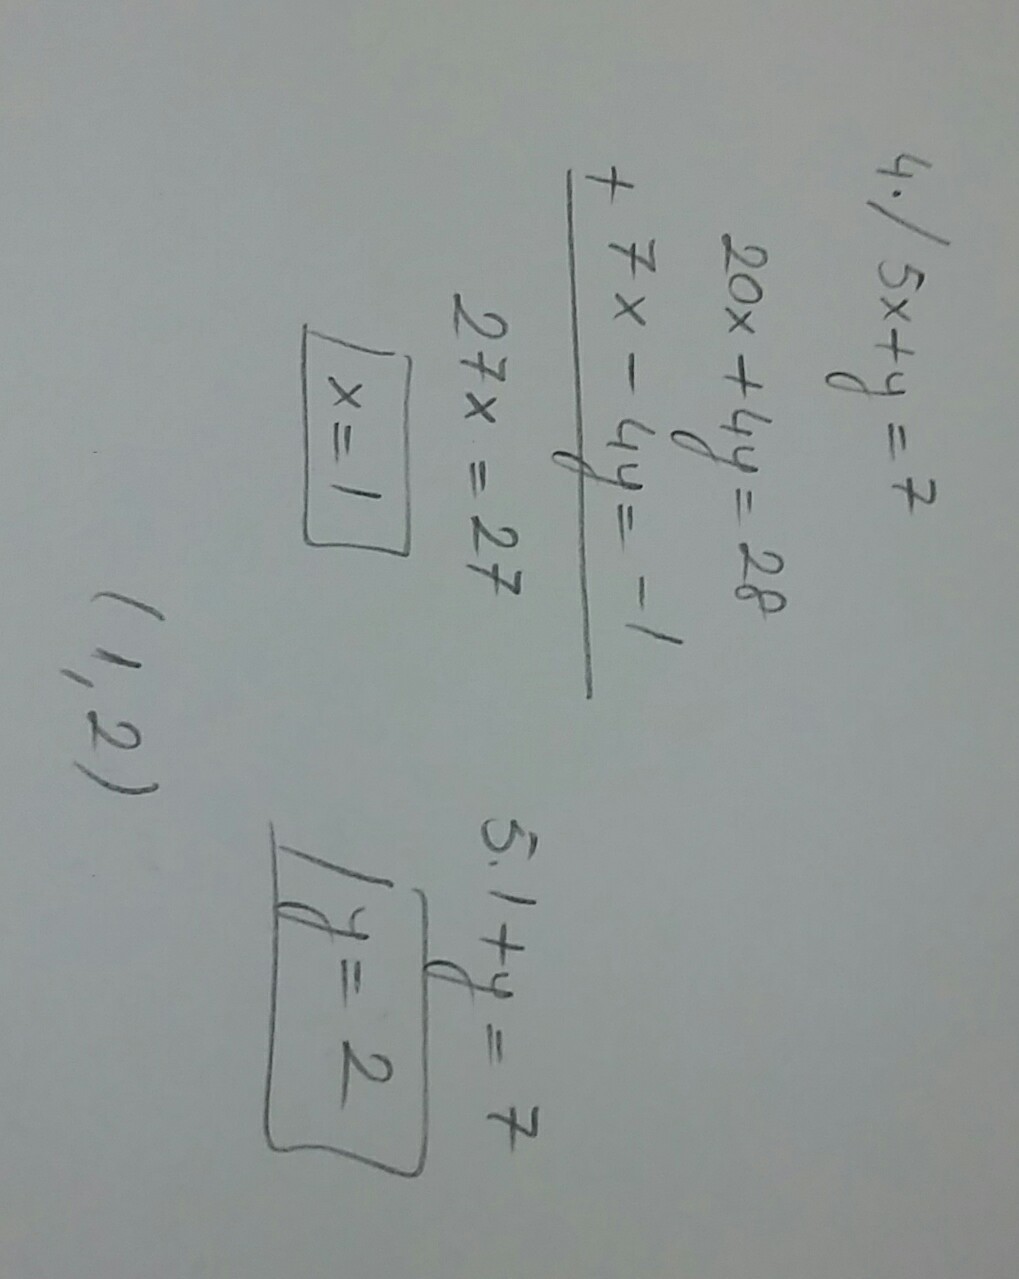 4./ 5x+y=7
20x+4y=28
+ 7x-4y=-1
27x=27
x=1
5.1+y=7
y=2
(1,2)